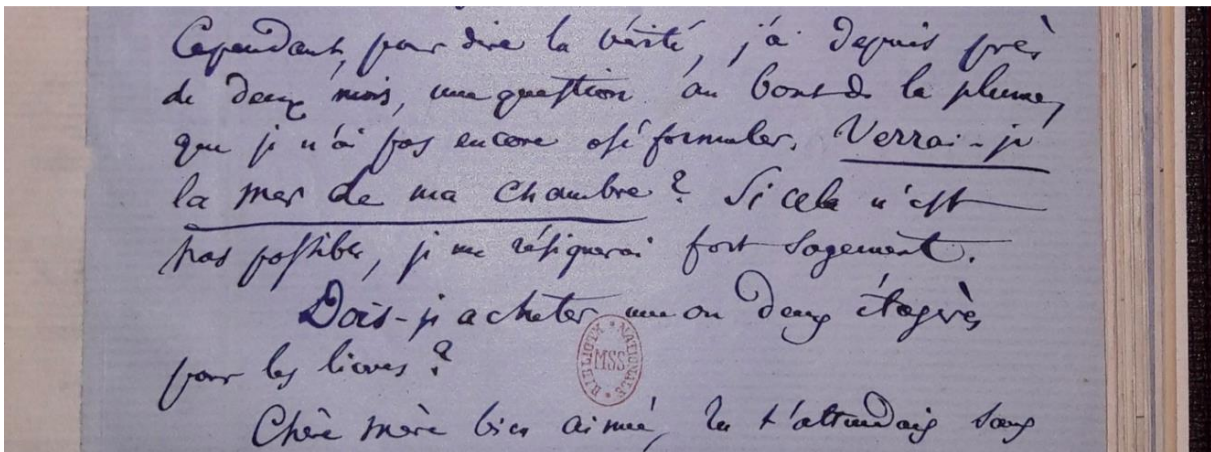 Cependant, pour dire la vérité, j'ai depuis près
de deux mois, une question au bout de la plume,
que je n'ai pas encore osé formuler. Verrai-je
la mer de ma chambre ? Si cela n'est
pas possible, je me résignerai fort sagement.
Dois-je acheter une ou deux étagères
pour les livres ?
BIBLIOTH NATIONALE
MSS
Chère mère bien aimée, tu t'attendais sans